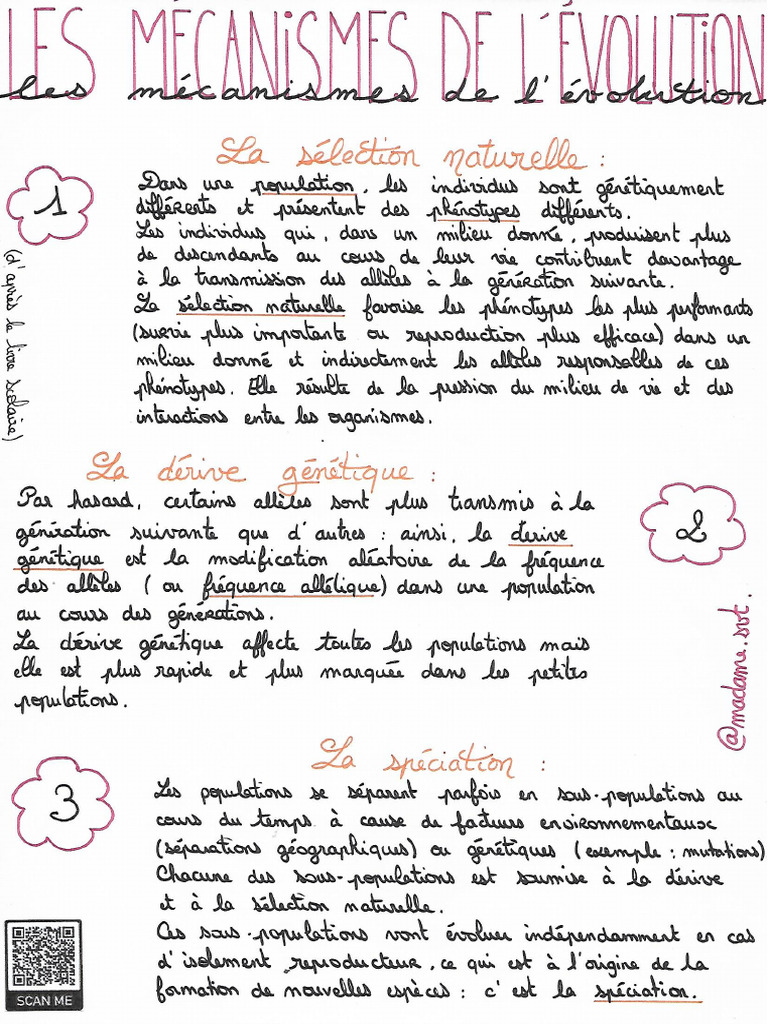 LES MÉCANISMES DE L'ÉVOLUTION
les mécanismes de l'évolution
La sélection naturelle :
1
(d'après le livre scolaire)
Dans une population, les individus sont génétiquement
différents et présentent des phénotypes différents.
Les individus qui, dans un milieu donné, produisent plus
de descendants au cours de leur vie contribuent davantage
à la transmission des allèles à la génération suivante.
La sélection naturelle favorise les phénotypes les plus performants
(survie plus importante ou reproduction plus efficace) dans un
milieu donné et indirectement les allèles responsables de ces
phénotypes. Elle résulte de la pression du milieu de vie et des
interactions entre les organismes.
La dérive génétique :
2
Par hasard, certains allèles sont plus transmis à la
génération suivante que d'autres : ainsi, la dérive
génétique est la modification aléatoire de la fréquence
des allèles (ou fréquence allélique) dans une population
au cours des générations.
La dérive génétique affecte toutes les populations mais
elle est plus rapide et plus marquée dans les petites
populations.
@madame.svt.
La spéciation :
3
Les populations se séparent parfois en sous-populations au
cours du temps à cause de facteurs environnementaux
(séparations géographiques) ou génétiques (exemple : mutations)
Chacune des sous-populations est soumise à la dérive
et à la sélection naturelle.
Ces sous-populations vont évoluer indépendamment en cas
d'isolement reproducteur, ce qui est à l'origine de la
formation de nouvelles espèces : c'est la spéciation.
SCAN ME